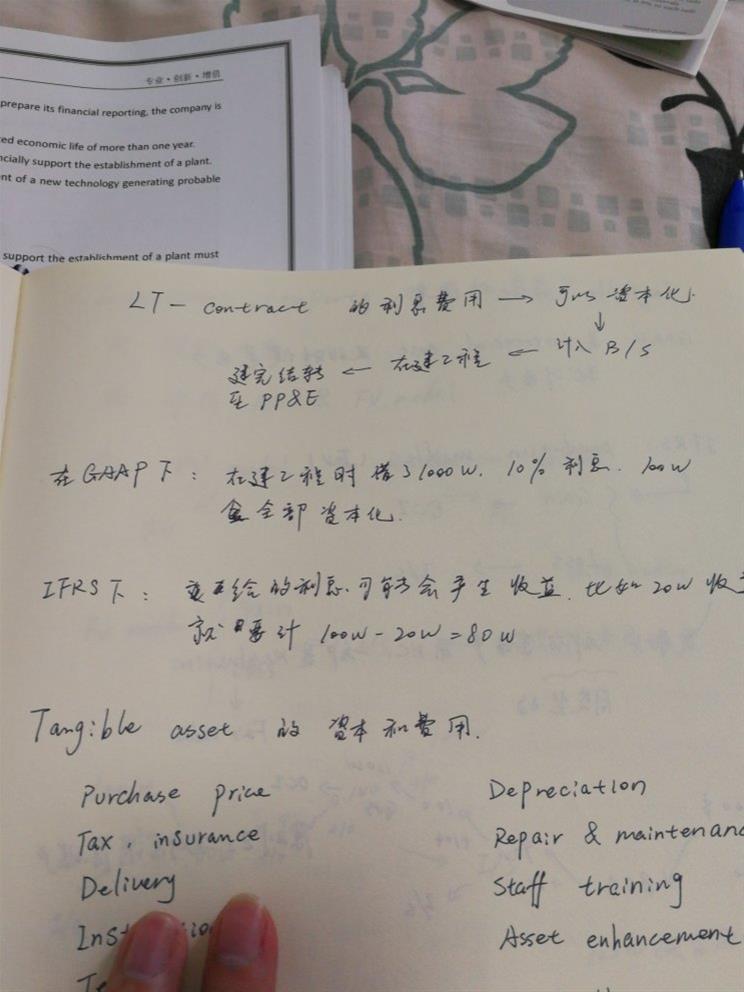 专业·创新·增值
prepare its financial reporting, the company is
ed economic life of more than one year.
ncially support the establishment of a plant.
nt of a new technology generating probable
support the establishment of a plant must
LT - contract 的利息费用 → 可以资本化.
↓
建完结转 ← 在建工程 ← 计入 B/S
至 PP&E
在 GAAP 下 : 在建工程时借了1000W. 10% 利息. 100W
全部资本化.
IFRS 下 : 给的利息可能会产生收益. 比如 20W 收
就要计 100W - 20W = 80W
Tangible asset 的 资本和费用.
Purchase price Depreciation
Tax, insurance Repair & maintenanc
Delivery Staff training
Ins Asset enhancement
Te